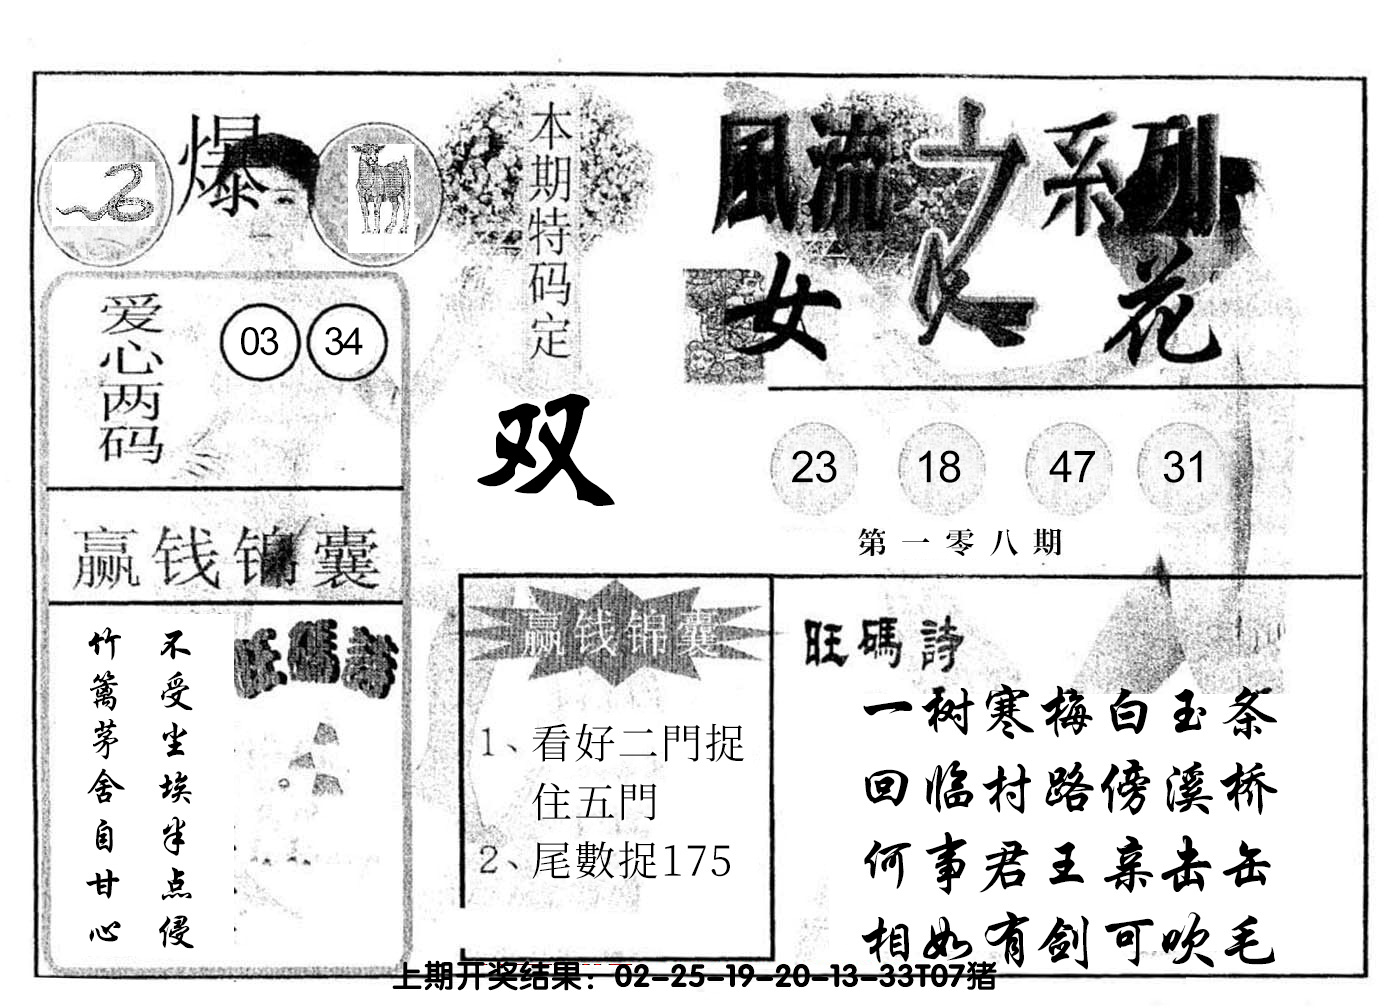 爆
爱心两码
03 34
赢钱锦囊
不受尘埃半点侵
竹篱茅舍自甘心
旺碼詩
本期特码定
双
風流之系列
女人花
23 18 47 31
第一零八期
赢钱锦囊
1、看好二門捉
住五門
2、尾數捉175
旺碼詩
一树寒梅白玉条
回临村路傍溪桥
何事君王亲击缶
相如有剑可吹毛
上期开奖结果：02-25-19-20-13-33T07猪